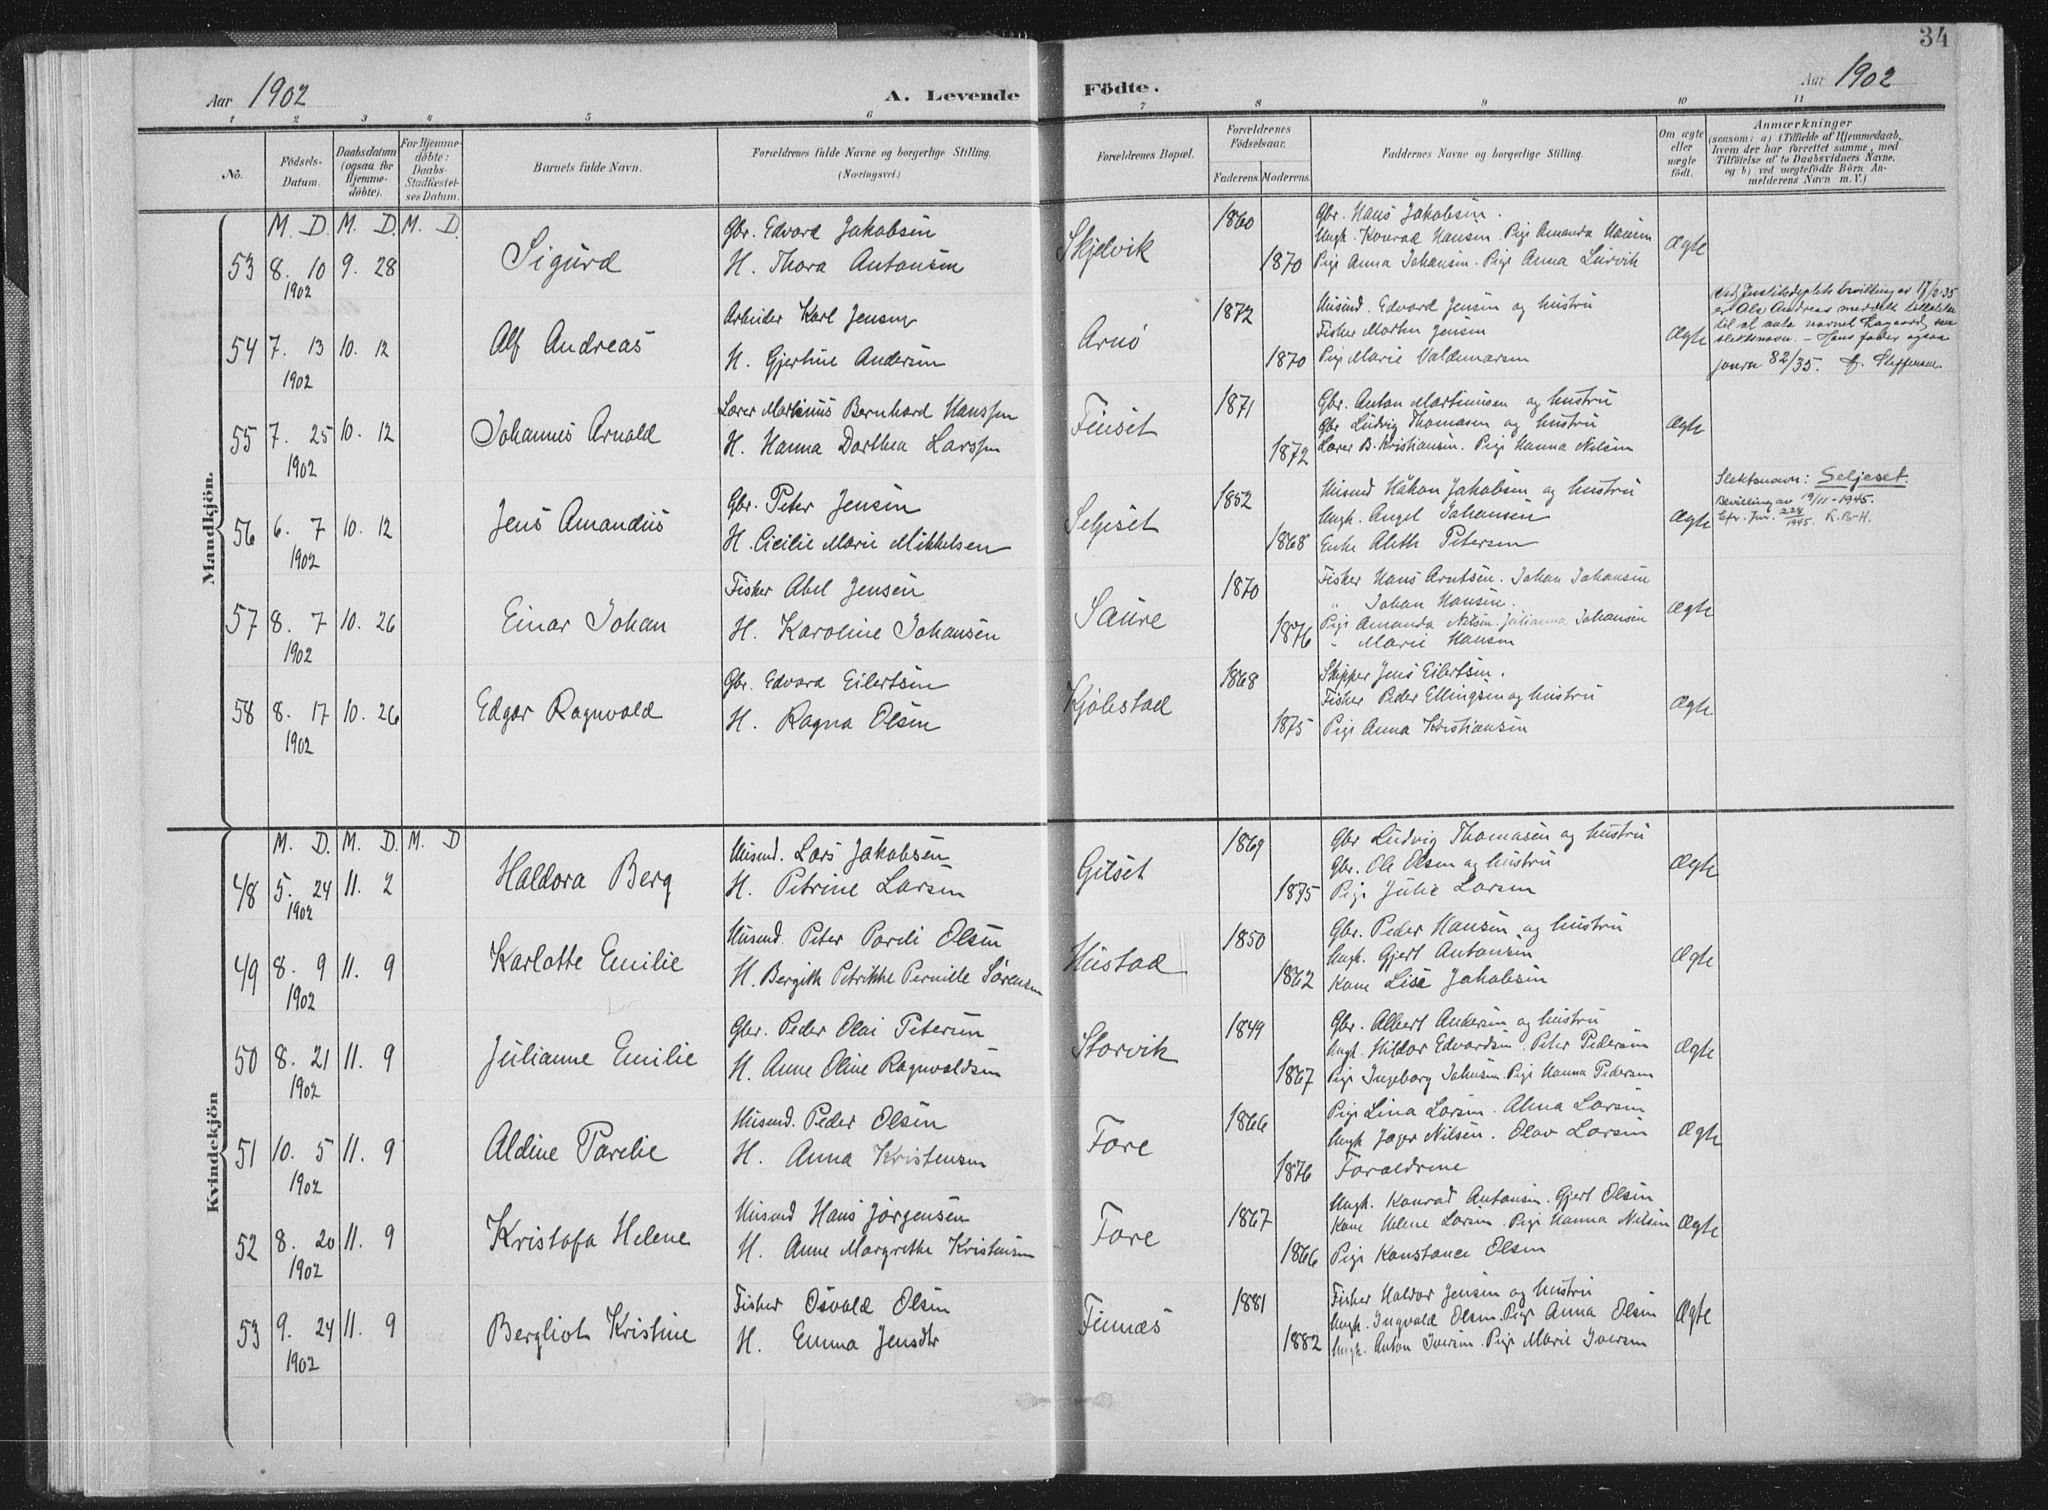 34
Aar 1902
A. Levende Födte.
Aar 1902
1 2 3 4 5 6 7 8 9 10 11
No.
Födsels-Datum.
Daabsdatum (ogsaa for Hjemme-döbte).
For Hjemme-döbte: Daabs-Stadfæstel-ses Datum.
Barnets fulde Navn.
Forældrenes fulde Navne og borgerlige Stilling.
(Næringsvei.)
Forældrenes Bopæl.
Forældrenes Födselsaar.
Faderens. Moderens.
Faddernes Navne og borgerlige Stilling.
Om ægte eller uægte födt.
Anmærkninger
(saasom: a) i Tilfælde af Hjemmedaab, hvem der har forrettet samme, med Tilföielse af to Daabsvidners Navne. og b) ved uægtefödte Börn An-melderens Navn m. V.)
Mandkjön.
M. D. M. D. M. D.
53 8. 10 1902 9. 28
Sigurd
Gbr. Edvard Jakobsen
H. Thora Antonsen
Skjelvik
1860
1870
Gbr. Hans Jakobsen.
Ungk. Konrad Hansen. Pige Amanda Hansen
Pige Anna Johansen. Pige Anna Lurvik
Ægte
54 7. 13 1902 10. 12
Alf Andreas
Arbeider Karl Jensen
H. Gjertine Andersen
Arnö
1872
1870
Husmd. Edvard Jensen og hustru
Fisker Martin Jensen
Pige Marie Valdemarsen
Ægte
Ved Justitsdeptets bevilling av 17/2-35
er Alf Andreas meddelt tillatelse
til at anta navnet Aagaard som
slektsnavn. - Hans fader ogsaa
journ 82/35. Steffensen
55 7. 25 1902 10. 12
Johannes Arnold
Lærer Martinus Bernhard Hanssen
H. Hanna Dorthea Larssen
Finset
1871
1872
Gbr. Anton Martinusen og hustru
Gbr Ludvig Thomasen og hustru
Lærer B. Kristiansen. Pige Hanna Nilsen
Ægte
56 6. 7 1902 10. 12
Jens Amandus
Gbr. Peter Jensen
H. Cicilie Marie Mikkelsen
Seljeset
1852
1868
Husmd Håkon Jakobsen og hustru
Ungk. Angel Johansen
Enke Aleth Petersen
Ægte
Slektsnavn: Seljeset.
Bevilling av 19/11-1945.
Efr. Jnr. 228/1945. K.B-H.
57 8. 7 1902 10. 26
Einar Johan
Fisker Abel Jensen
H. Karoline Johansen
Saure
1870
1876
Fisker Hans Arntsen. Johan Johansen
" Johan Hansen.
Pige Amanda Nilsen. Julianna Johansen
" Marie Hansen
Ægte
58 8. 17 1902 10. 26
Edgar Ragnvald
Gbr. Edvard Eilertsen
H. Ragna Olsen
Kjöbstad
1868
1875
Skipper Jens Eilertsen.
Fisker Peder Ellingsen og hustru
Pige Anna Kristiansen
Ægte
Kvindekjön
M. D. M. D. M. D
48 5. 24 1902 11. 2
Haldora Berg
Husmd. Lars Jakobsen
H. Petrine Larsen
Gilset
1869
1875
Gbr Ludvig Thomasen og hustru
Gbr. Ole Olsen og hustru
Pige Julie Larsen
Ægte
49 8. 9 1902 11. 9
Karlotte Emilie
Husmd. Peter Pareli Olsen
H. Bergith Petrikke Pernille Sörensen
Hustad
1850
1862
Gbr. Peder Hansen og hustru
Ungk. Gjert Antonsen
Kone Lise Jakobsen
Ægte
50 8. 21 1902 11. 9
Julianne Emilie
Gbr. Peder Olai Petersen
H. Anne Oline Ragnvaldsen
Storvik
1849
1867
Gbr. Albert Andersen og hustru
Ungk. Hildor Edvardsen. Peter Pedersen
Pige Ingeborg Johnsen. Pige Hanna Pedersen
Ægte
51 10. 5 1902 11. 9
Aldine Parelie
Husmd. Peder Olsen
H. Anna Kristensen
Fore
1866
1876
Pige Lina Larsen. Alma Larsen
Ungk. Jager Nilsen. Olav Larsen
Forældrene
Ægte
52 8. 20 1902 11. 9
Kristofa Helene
Husmd Hans Jörgensen
H. Anne Margrethe Kristensen
Fore
1867
1866
Ungk. Konrad Antonsen. Gjert Olsen
Kone Helene Larsen. Pige Hanna Nilsen
Pige Konstance Olsen
Ægte
53 9. 24 1902 11. 9
Bergliot Kristine
Fisker Osvald Olsen
H. Emma Jensdtr
Finnæs
1881
1882
Fisker Haldor Jensen og hustru
Ungk. Ingvald Olsen. Pige Anna Olsen
Ungk. Anton Iversen. Pige Marie Iversen
Ægte